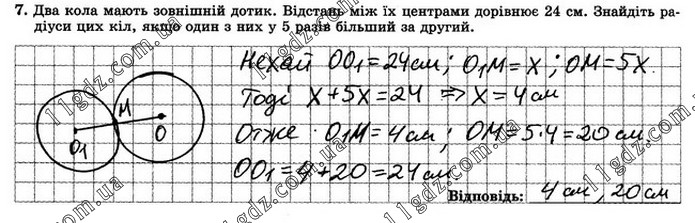 7. Два кола мають зовнішній дотик. Відстань між їх центрами дорівнює 24 см. Знайдіть ра-
діуси цих кіл, якщо один з них у 5 разів більший за другий.
Нехай OO₁ = 24 см; O₁M = x; OM = 5x.
Тоді x + 5x = 24 ⇒ x = 4 см
Отже O₁M = 4 см; OM = 5·4 = 20 см
OO₁ = 4 + 20 = 24 см
M
O₁
O
Відповідь: 4 см, 20 см
11gdz.com.ua
11gdz.com.ua
11gdz.com.ua
11gdz.com.ua